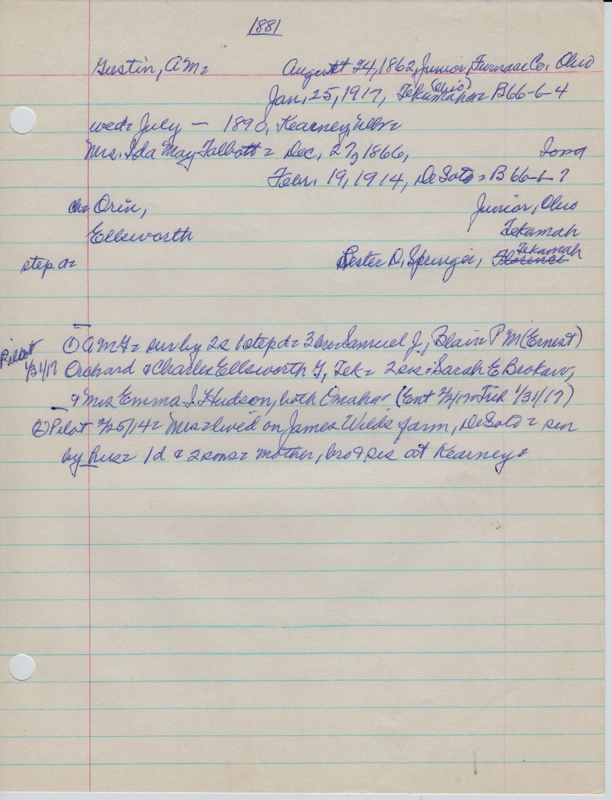 1881
Gustin, A M= August 24, 1862, Junior, Furnace Co, Ohio
(Ohio)
Jan, 25, 1917, Tekamah= B66-6-4
wed= July — 1890, Kearney, Nebr=
Mrs. Ida May Talbott= Dec, 27, 1866, Iowa
Febr. 19, 1914, DeSoto= B 66-6-7
ch= Orin, Junior, Ohio
Ellsworth Tekamah
step d= Lester D, Springer, Florence Tekamah
① A M G= sur by 2s 1 step d= 3 bro= Samuel J., Blair P M (Ernest)
Pilot
1/31/17 Orchard & Charles Ellsworth G, Tek= 2 sis= Sarah E Brokaw,
& Mrs Emma I. Hudson, both Omaha= (Ent 2/1 no Trib 1/31/17)
② Pilot 2/25/14= Mrs= lived on James Wilds farm, DeSoto= sur
by hus= 1d & 2 sons= mother, bro & sis at Kearney=